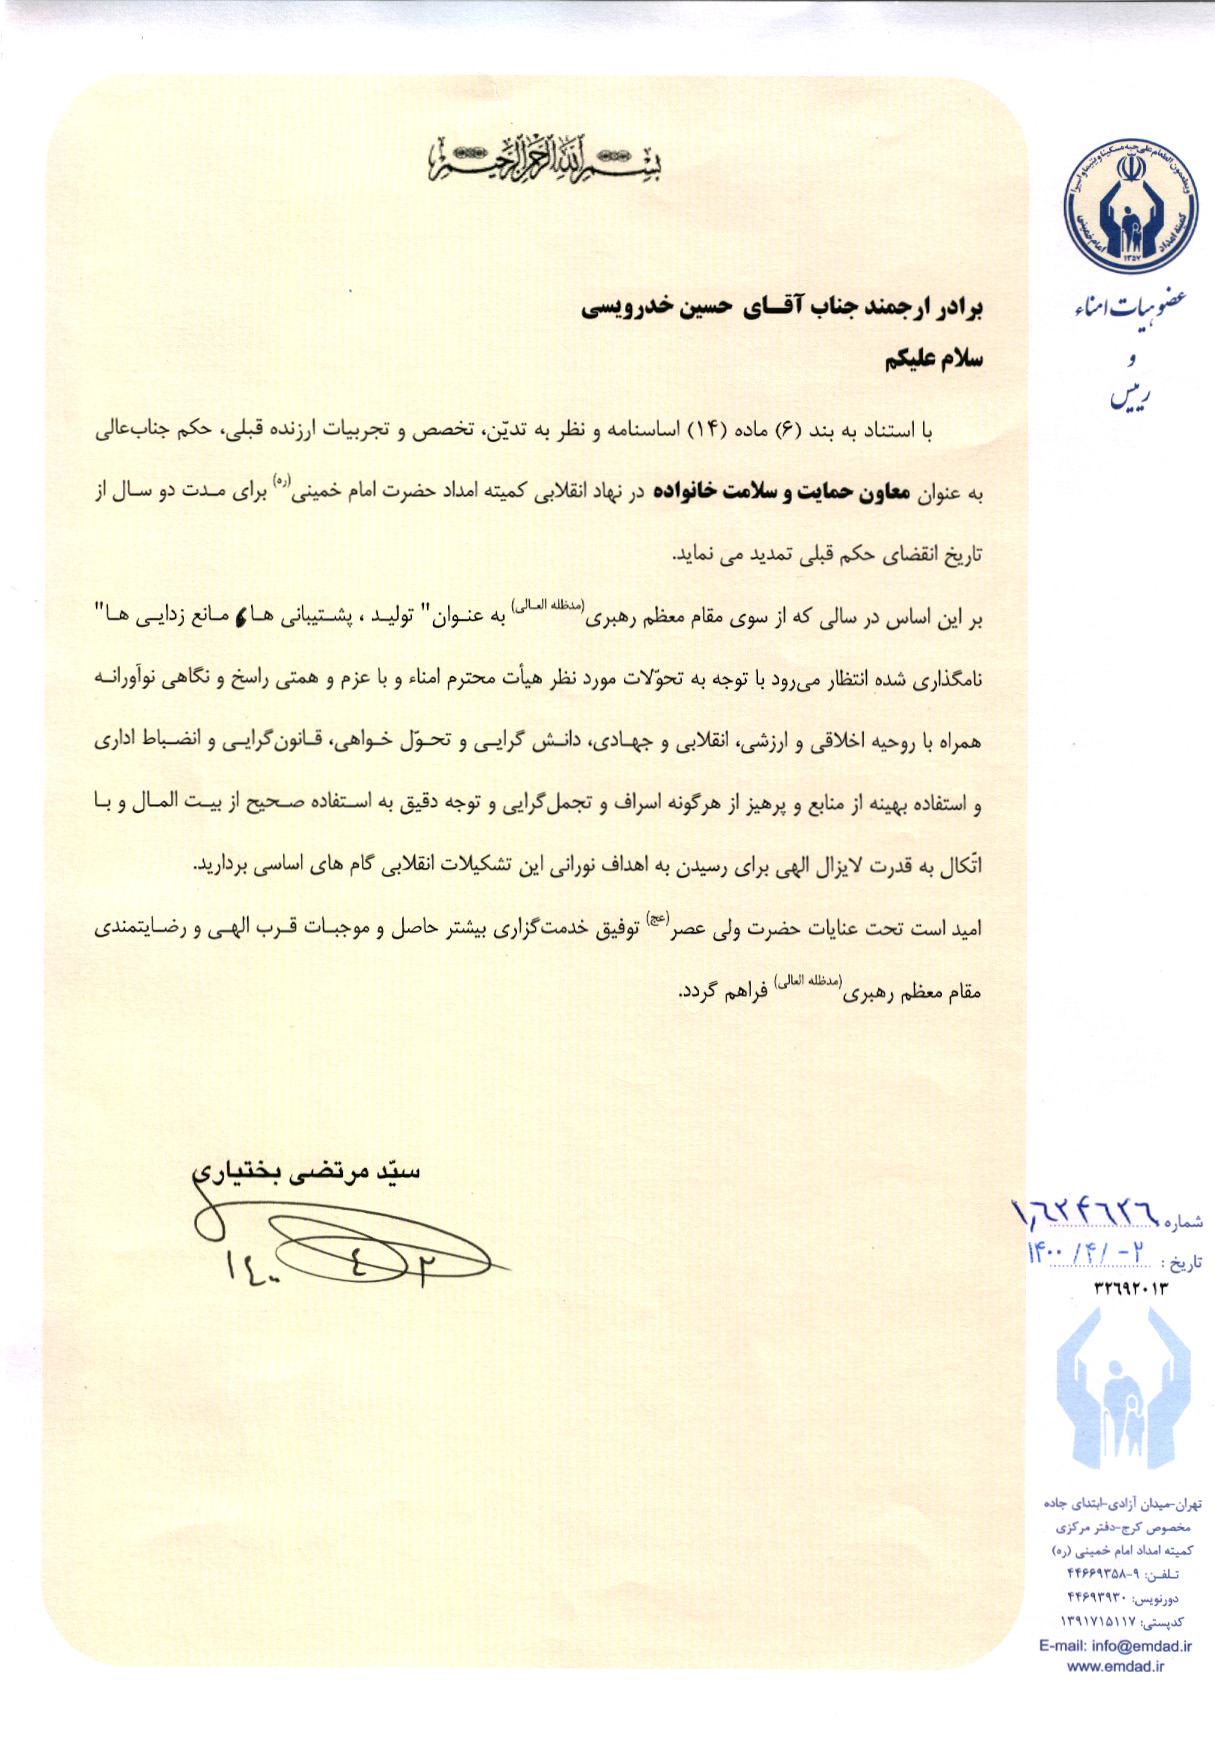 بسم الله الرحمن الرحیم
ویطعمون الطعام علی حبه مسکینا و یتیما و اسیرا
کمیته امداد امام خمینی
۱۳۵۷
عضو هیات امناء
و
رییس
برادر ارجمند جناب آقـای حسین خدرویسی
سلام علیکم
با استناد به بند (۶) ماده (۱۴) اساسنامه و نظر به تدیّن، تخصص و تجربیات ارزنده قبلی، حکم جناب‌عالی
به عنوان معاون حمایت و سلامت خانواده در نهاد انقلابی کمیته امداد حضرت امام خمینی(ره) برای مـدت دو سـال از
تاریخ انقضای حکم قبلی تمدید می نماید.
بر این اساس در سالی که از سوی مقام معظم رهبری(مدظله العـالی) به عنـوان" تولیـد ، پشـتیبانی هـا، مـانع زدایـی هـا"
نامگذاری شده انتظار می‌رود با توجه به تحوّلات مورد نظر هیأت محترم امناء و با عزم و همتی راسخ و نگاهی نوآورانـه
همراه با روحیه اخلاقی و ارزشی، انقلابی و جهـادی، دانـش گرایـی و تحـوّل خـواهی، قـانون‌گرایـی و انضـباط اداری
و استفاده بهینه از منابع و پرهیز از هرگونه اسراف و تجمل‌گرایی و توجه دقیق به اسـتفاده صـحیح از بیـت المـال و بـا
اتّکال به قدرت لایزال الهی برای رسیدن به اهداف نورانی این تشکیلات انقلابی گام های اساسی بردارید.
امید است تحت عنایات حضرت ولی عصر(عج) توفیق خدمت‌گزاری بیشتر حاصل و موجبـات قـرب الهـی و رضـایتمندی
مقام معظم رهبری(مدظله العالی) فراهم گردد.
سیّد مرتضی بختیاری
۱۴۰۰ ۴ ۲
شماره ۱٫۶۲۴۶۲۶
تاریخ : ۱۴۰۰/۴/-۲
۳۲۶۹۲۰۱۳
تهران-میدان آزادی-ابتدای جاده
مخصوص کرج-دفتر مرکزی
کمیته امداد امام خمینی (ره)
تـلفـن: ۹-۴۴۶۶۹۳۵۸
دورنویس: ۴۴۶۹۳۹۳۰
کدپستی: ۱۳۹۱۷۱۵۱۱۷
E-mail: info@emdad.ir
www.emdad.ir